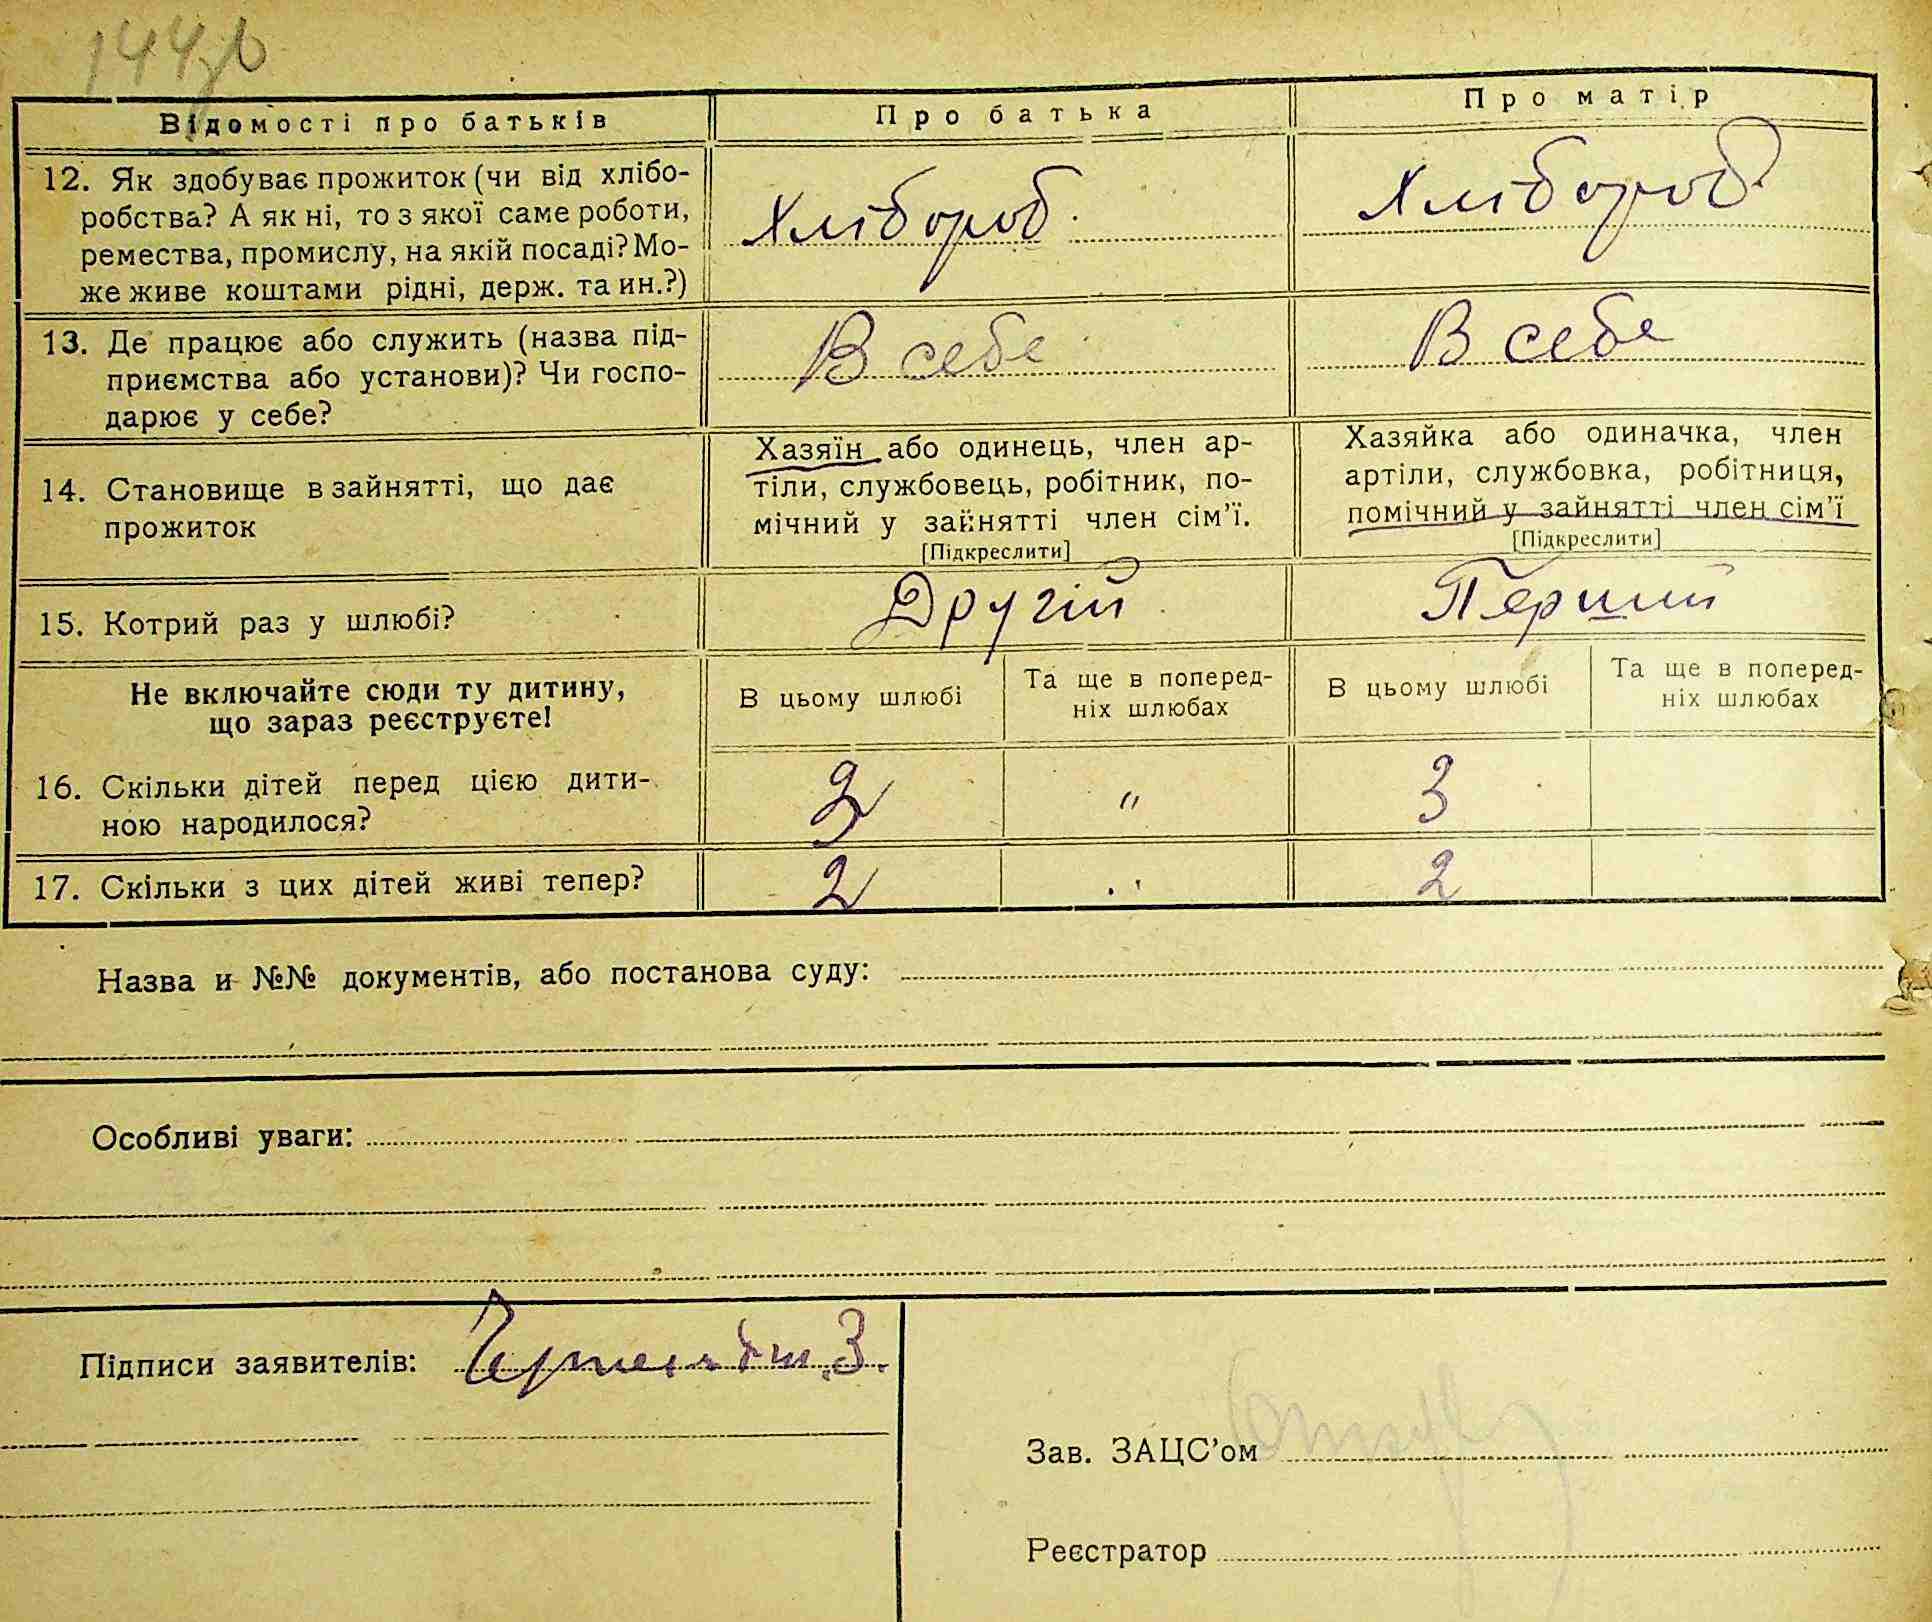 144зв
Відомості про батьків
Про батька
Про матір
12. Як здобуває прожиток (чи від хлібо-
робства? А як ні, то з якої саме роботи,
ремества, промислу, на якій посаді? Мо-
же живе коштами рідні, держ. та ин.?)
Хлібороб.
Хлібороб
13. Де працює або служить (назва під-
приємства або установи)? Чи госпо-
дарює у себе?
В себе
В себе
14. Становище в зайнятті, що дає
прожиток
Хазяїн або одинець, член ар-
тіли, службовець, робітник, по-
мічний у зайнятті член сім'ї.
[Підкреслити]
Хазяйка або одиначка, член
артіли, службовка, робітниця,
помічний у зайнятті член сім'ї
[Підкреслити]
15. Котрий раз у шлюбі?
Другій
Перший
Не включайте сюди ту дитину,
що зараз реєструєте!
В цьому шлюбі
Та ще в поперед-
ніх шлюбах
В цьому шлюбі
Та ще в поперед-
ніх шлюбах
16. Скільки дітей перед цією дити-
ною народилося?
3
"
3
17. Скільки з цих дітей живі тепер?
2
"
2
Назва и №№ документів, або постанова суду:
Особливі уваги:
Підписи заявителів:
З.
Зав. ЗАЦС'ом
Реєстратор